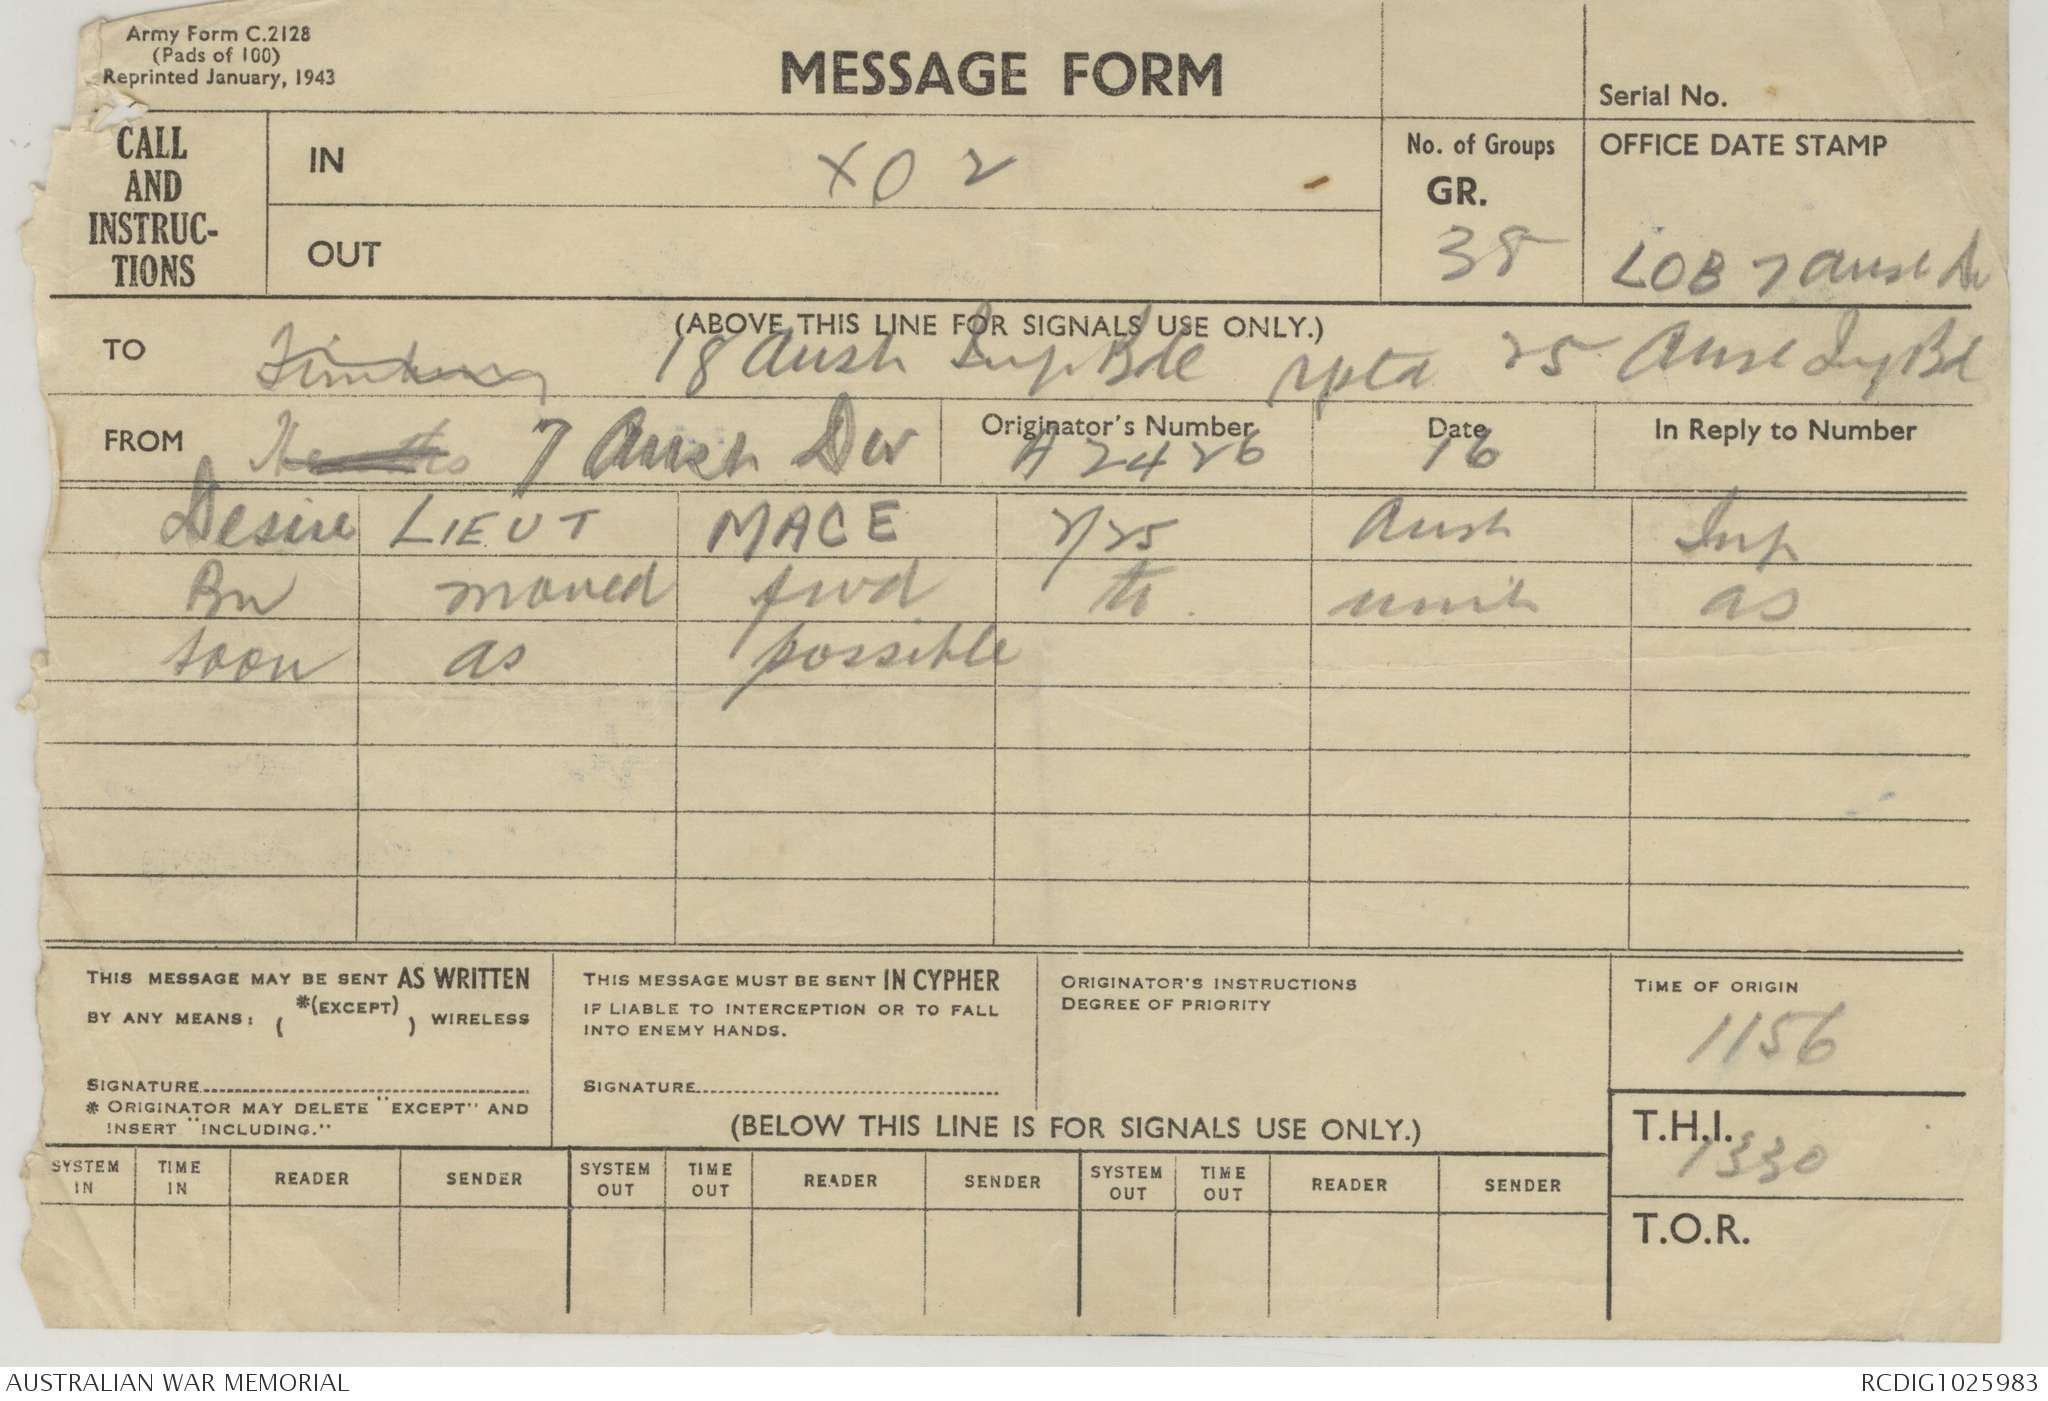 Army Form C.2128
(Pads of 100)
Reprinted January, 1943
MESSAGE FORM
Serial No.
CALL
AND
INSTRUC-
TIONS
IN
XO 2
OUT
No. of Groups
GR.
38
OFFICE DATE STAMP
LOB 7 Aust Div
(ABOVE THIS LINE FOR SIGNALS USE ONLY.)
TO 18 Aust Inf Bde rptd 25 Aust Inf Bd
FROM 7 Aust Div
Originator's Number
A 2426
Date
16
In Reply to Number
Desire LIEUT MACE 2/25 Aust Inf
Bn moved fwd to unit as
soon as possible
THIS MESSAGE MAY BE SENT AS WRITTEN
BY ANY MEANS: ( *(EXCEPT) ) WIRELESS
SIGNATURE
* ORIGINATOR MAY DELETE "EXCEPT" AND
INSERT "INCLUDING."
THIS MESSAGE MUST BE SENT IN CYPHER
IF LIABLE TO INTERCEPTION OR TO FALL
INTO ENEMY HANDS.
SIGNATURE
ORIGINATOR'S INSTRUCTIONS
DEGREE OF PRIORITY
TIME OF ORIGIN
1156
(BELOW THIS LINE IS FOR SIGNALS USE ONLY.)
T.H.I.
1330
T.O.R.
SYSTEM IN TIME IN READER SENDER SYSTEM OUT TIME OUT READER SENDER SYSTEM OUT TIME OUT READER SENDER
AUSTRALIAN WAR MEMORIAL
RCDIG1025983